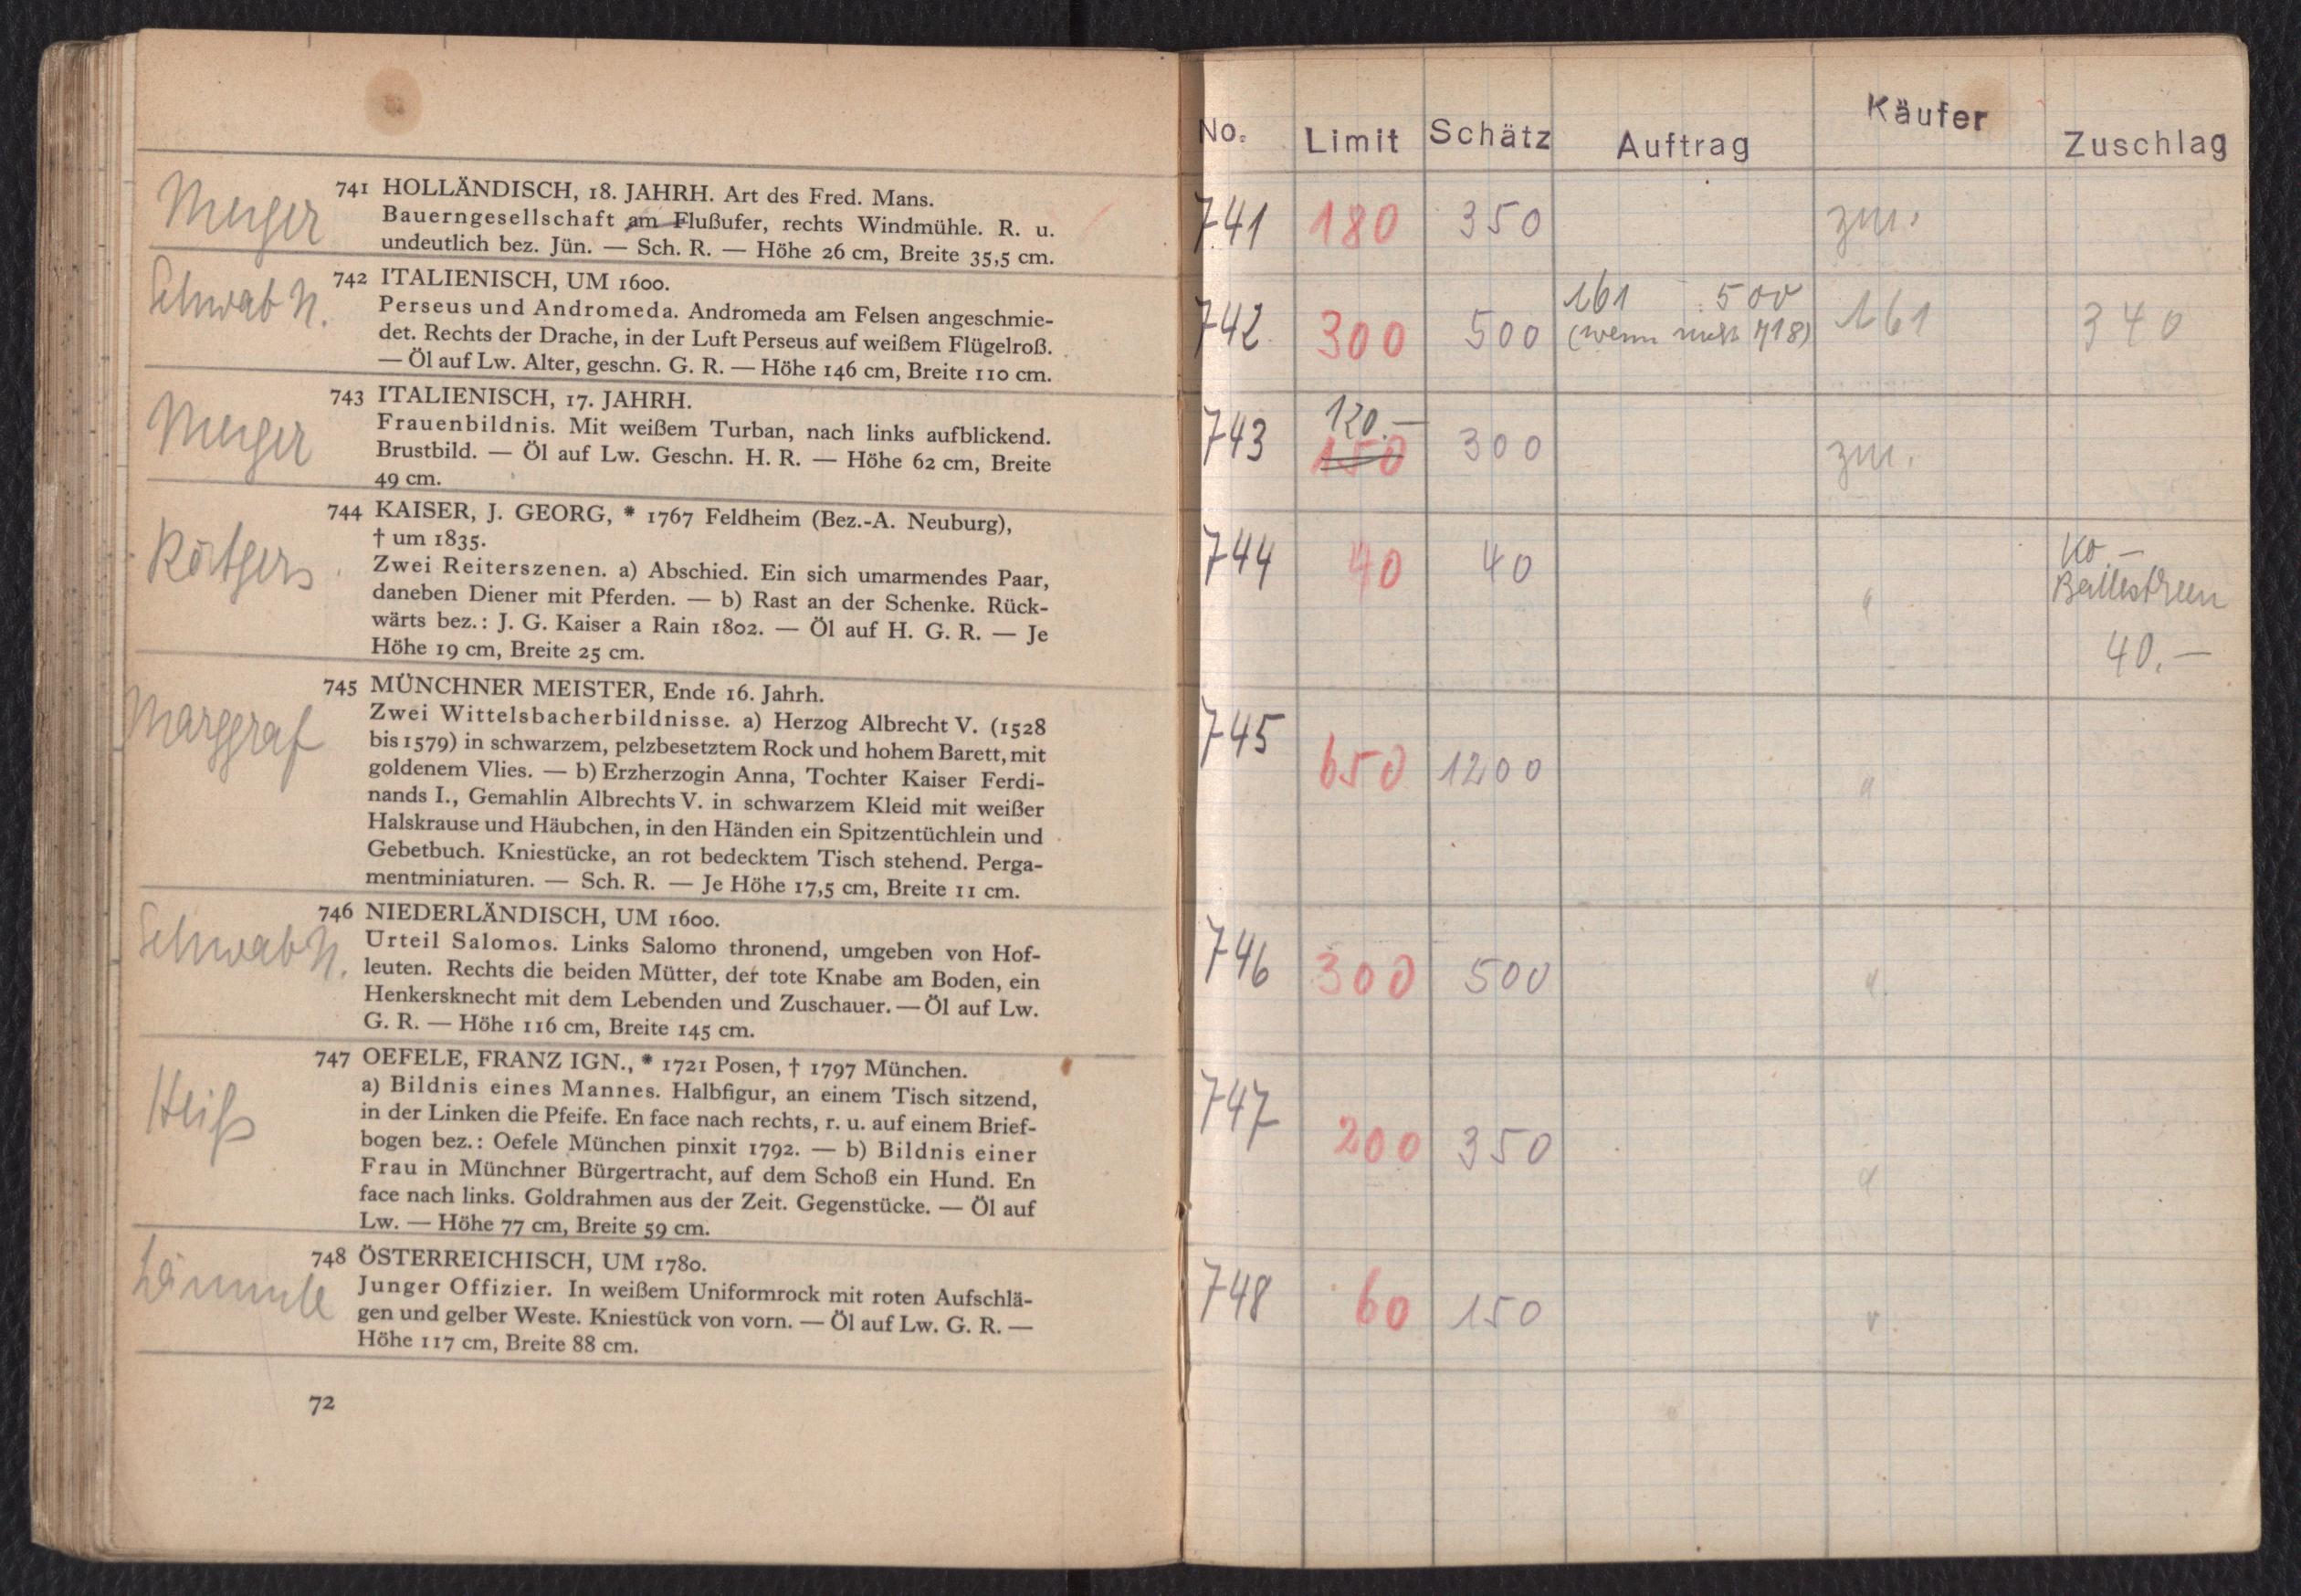 741 HOLLÄNDISCH, 18. JAHRH. Art des Fred. Mans.
Bauerngesellschaft am Flußufer, rechts Windmühle. R. u.
undeutlich bez. Jün. — Sch. R. — Höhe 26 cm, Breite 35,5 cm.
Schwab N.
742 ITALIENISCH, UM 1600.
Perseus und Andromeda. Andromeda am Felsen angeschmie-
det. Rechts der Drache, in der Luft Perseus auf weißem Flügelroß.
— Öl auf Lw. Alter, geschn. G. R. — Höhe 146 cm, Breite 110 cm.
743 ITALIENISCH, 17. JAHRH.
Frauenbildnis. Mit weißem Turban, nach links aufblickend.
Brustbild. — Öl auf Lw. Geschn. H. R. — Höhe 62 cm, Breite
49 cm.
Rötgers
744 KAISER, J. GEORG, * 1767 Feldheim (Bez.-A. Neuburg),
† um 1835.
Zwei Reiterszenen. a) Abschied. Ein sich umarmendes Paar,
daneben Diener mit Pferden. — b) Rast an der Schenke. Rück-
wärts bez.: J. G. Kaiser a Rain 1802. — Öl auf H. G. R. — Je
Höhe 19 cm, Breite 25 cm.
Marggraf
745 MÜNCHNER MEISTER, Ende 16. Jahrh.
Zwei Wittelsbacherbildnisse. a) Herzog Albrecht V. (1528
bis 1579) in schwarzem, pelzbesetztem Rock und hohem Barett, mit
goldenem Vlies. — b) Erzherzogin Anna, Tochter Kaiser Ferdi-
nands I., Gemahlin Albrechts V. in schwarzem Kleid mit weißer
Halskrause und Häubchen, in den Händen ein Spitzentüchlein und
Gebetbuch. Kniestücke, an rot bedecktem Tisch stehend. Perga-
mentminiaturen. — Sch. R. — Je Höhe 17,5 cm, Breite 11 cm.
Schwab N.
746 NIEDERLÄNDISCH, UM 1600.
Urteil Salomos. Links Salomo thronend, umgeben von Hof-
leuten. Rechts die beiden Mütter, der tote Knabe am Boden, ein
Henkersknecht mit dem Lebenden und Zuschauer. — Öl auf Lw.
G. R. — Höhe 116 cm, Breite 145 cm.
Heiß
747 OEFELE, FRANZ IGN., * 1721 Posen, † 1797 München.
a) Bildnis eines Mannes. Halbfigur, an einem Tisch sitzend,
in der Linken die Pfeife. En face nach rechts, r. u. auf einem Brief-
bogen bez.: Oefele München pinxit 1792. — b) Bildnis einer
Frau in Münchner Bürgertracht, auf dem Schoß ein Hund. En
face nach links. Goldrahmen aus der Zeit. Gegenstücke. — Öl auf
Lw. — Höhe 77 cm, Breite 59 cm.
Lämmle
748 ÖSTERREICHISCH, UM 1780.
Junger Offizier. In weißem Uniformrock mit roten Aufschlä-
gen und gelber Weste. Kniestück von vorn. — Öl auf Lw. G. R. —
Höhe 117 cm, Breite 88 cm.
72
No. Limit Schätz Auftrag Käufer Zuschlag
741 180 350 zur.
161 500
742 300 500 (wenn nicht 718) 161 340
120.—
743 150 300 zur.
744 40 40 "
40.—
745 650 1200 "
746 300 500 "
747 200 350 "
748 60 150 "